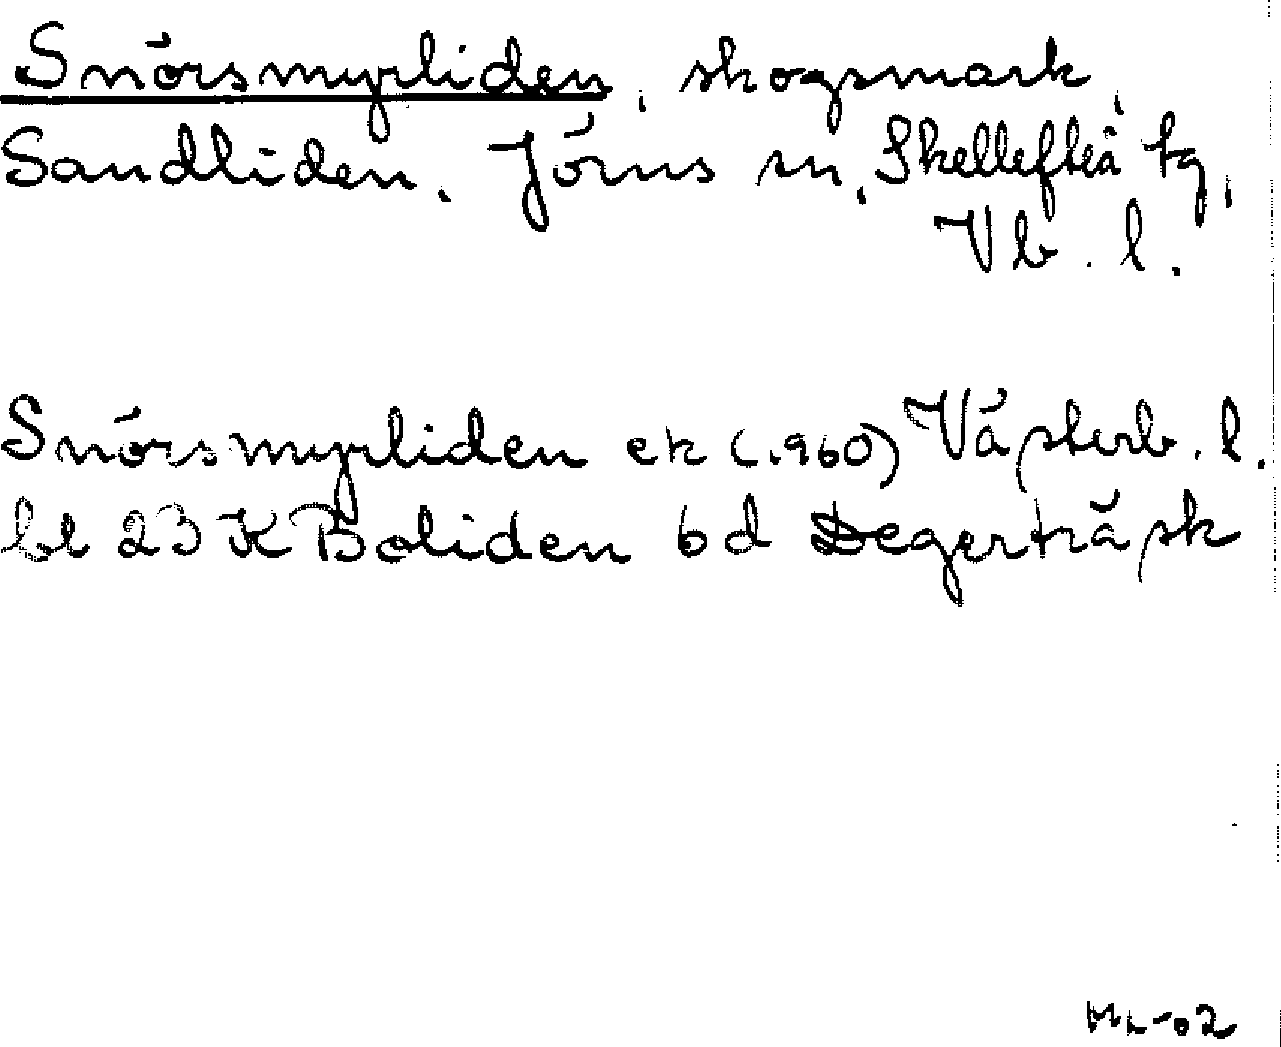 Snörsmyrliden, skogsmark,
Sandliden, Jörns sn, Skellefteå tg,
Vb. l.
Snörsmyrliden ek (1960) Västerb. l.
bl 23 K Boliden 6 d Degerträsk